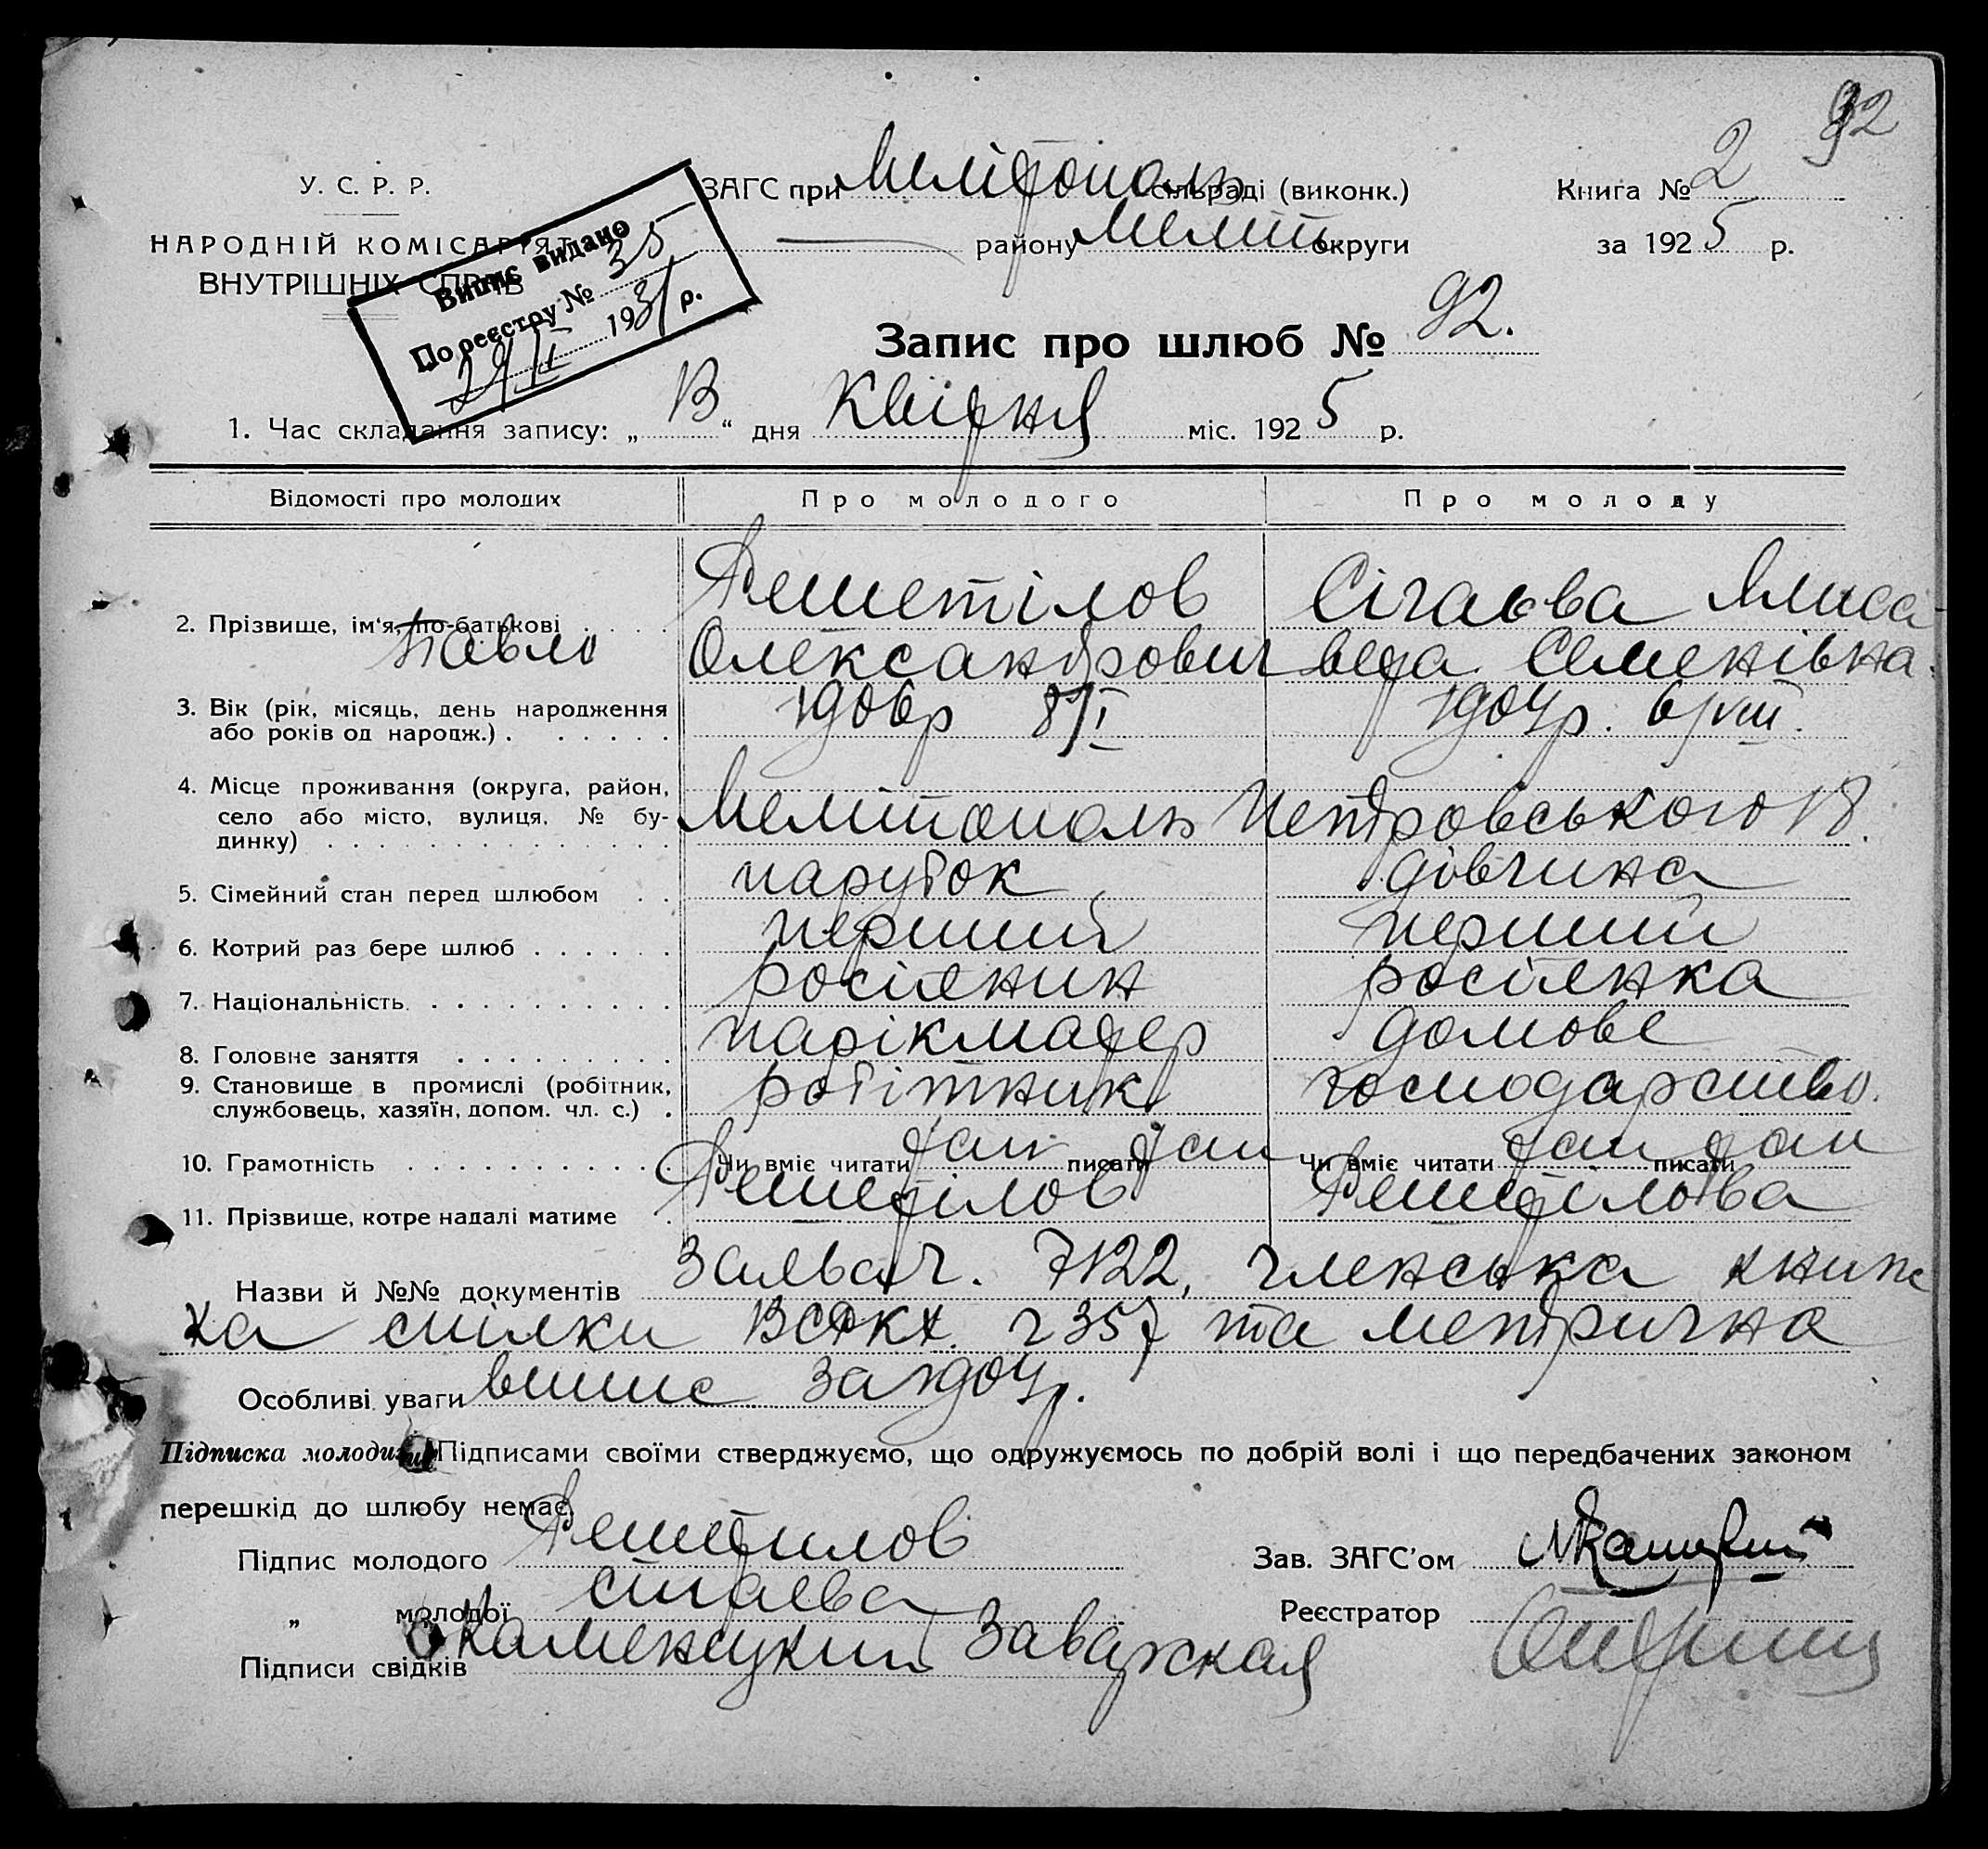 92
У. С. Р. Р.
НАРОДНІЙ КОМІСАР'ЯТ
ВНУТРІШНІХ СПРАВ
Випис видано
По реєстру № 35
29/II 1931 р.
ЗАГС при Мелітополь сільраді (виконк.)
району Меліт округи
Книга № 2
за 1925 р.
Запис про шлюб № 92.
1. Час складання запису: „13“ дня Квітня міс. 1925 р.
Відомості про молодих Про молодого Про молоду
Решетілов Сігаєва
2. Прізвище, ім'я, по-батькові . . . .
Павло Олександрович Семенівна
3. Вік (рік, місяць, день народження 1906р 8/I 1904р. 6/VIII.
або років од народж.) . . . . . .
4. Місце проживання (округа, район,
село або місто, вулиця, № бу- Мелітополь Петровського 18.
динку) . . . . . . . . . . . . . .
5. Сімейний стан перед шлюбом . . парубок дівчина
6. Котрий раз бере шлюб . . . . . . перший перший
7. Національність . . . . . . . . . . росіянин росіянка
8. Головне заняття . . . . . . . . . парікмахер домове
9. Становище в промислі (робітник, робітник господарство.
службовець, хазяїн, допом. чл. с.) .
10. Грамотність . . . . . . . . . . . Чи вміє читати так писати так Чи вміє читати так писати так
11. Прізвище, котре надалі матиме . Решетілов Решетілова
Назви й №№ документів ч. 7122, членська книж
ка спілки ч 357 та метрична
Особливі уваги випис за 1904р.
Підписка молодих Підписами своїми стверджуємо, що одружуємось по добрій волі і що передбачених законом
перешкід до шлюбу немає.
Підпис молодого Решетилов
Зав. ЗАГС'ом
„ молодої Сигаева
Реєстратор
Підписи свідків Каменецкий